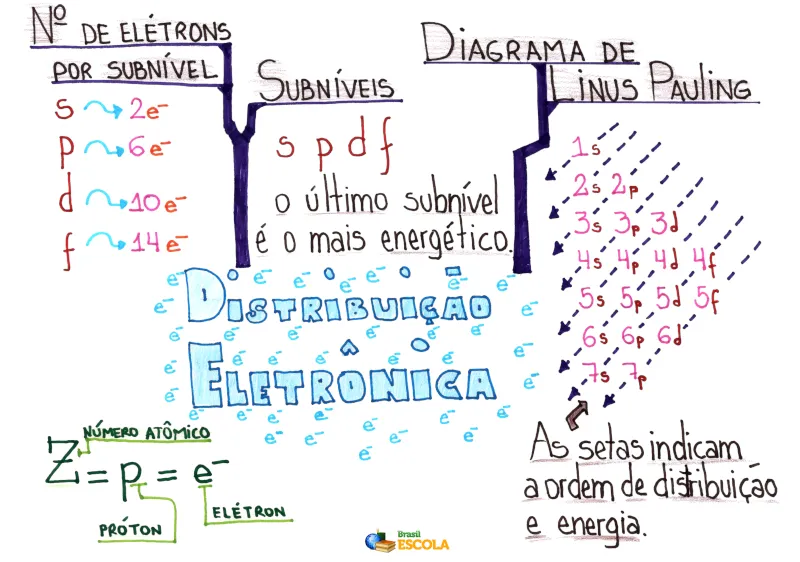 Nº DE ELÉTRONS
POR SUBNÍVEL
s 2e⁻
p 6e⁻
d 10e⁻
f 14e⁻
SUBNÍVEIS
s p d f
o último subnível
é o mais energético.
DIAGRAMA DE
LINUS PAULING
1s
2s 2p
3s 3p 3d
4s 4p 4d 4f
5s 5p 5d 5f
6s 6p 6d
7s 7p
As setas indicam
a ordem de distribuição
e energia.
e⁻ e⁻ e⁻ e⁻ e⁻ e⁻ e⁻
DISTRIBUIÇÃO
ELETRÔNICA
NÚMERO ATÔMICO
Z = p = e⁻
PRÓTON
ELÉTRON
Brasil
ESCOLA